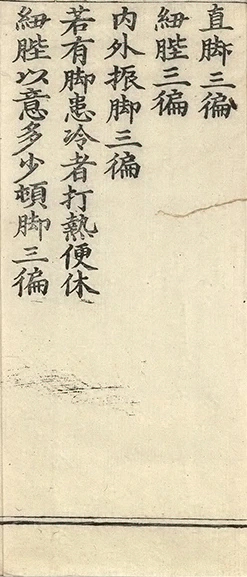 直脚三徧
紐䏶三徧
内外振脚三徧
若有脚患冷者打熱便休
紐䏶以意多少頓脚三徧